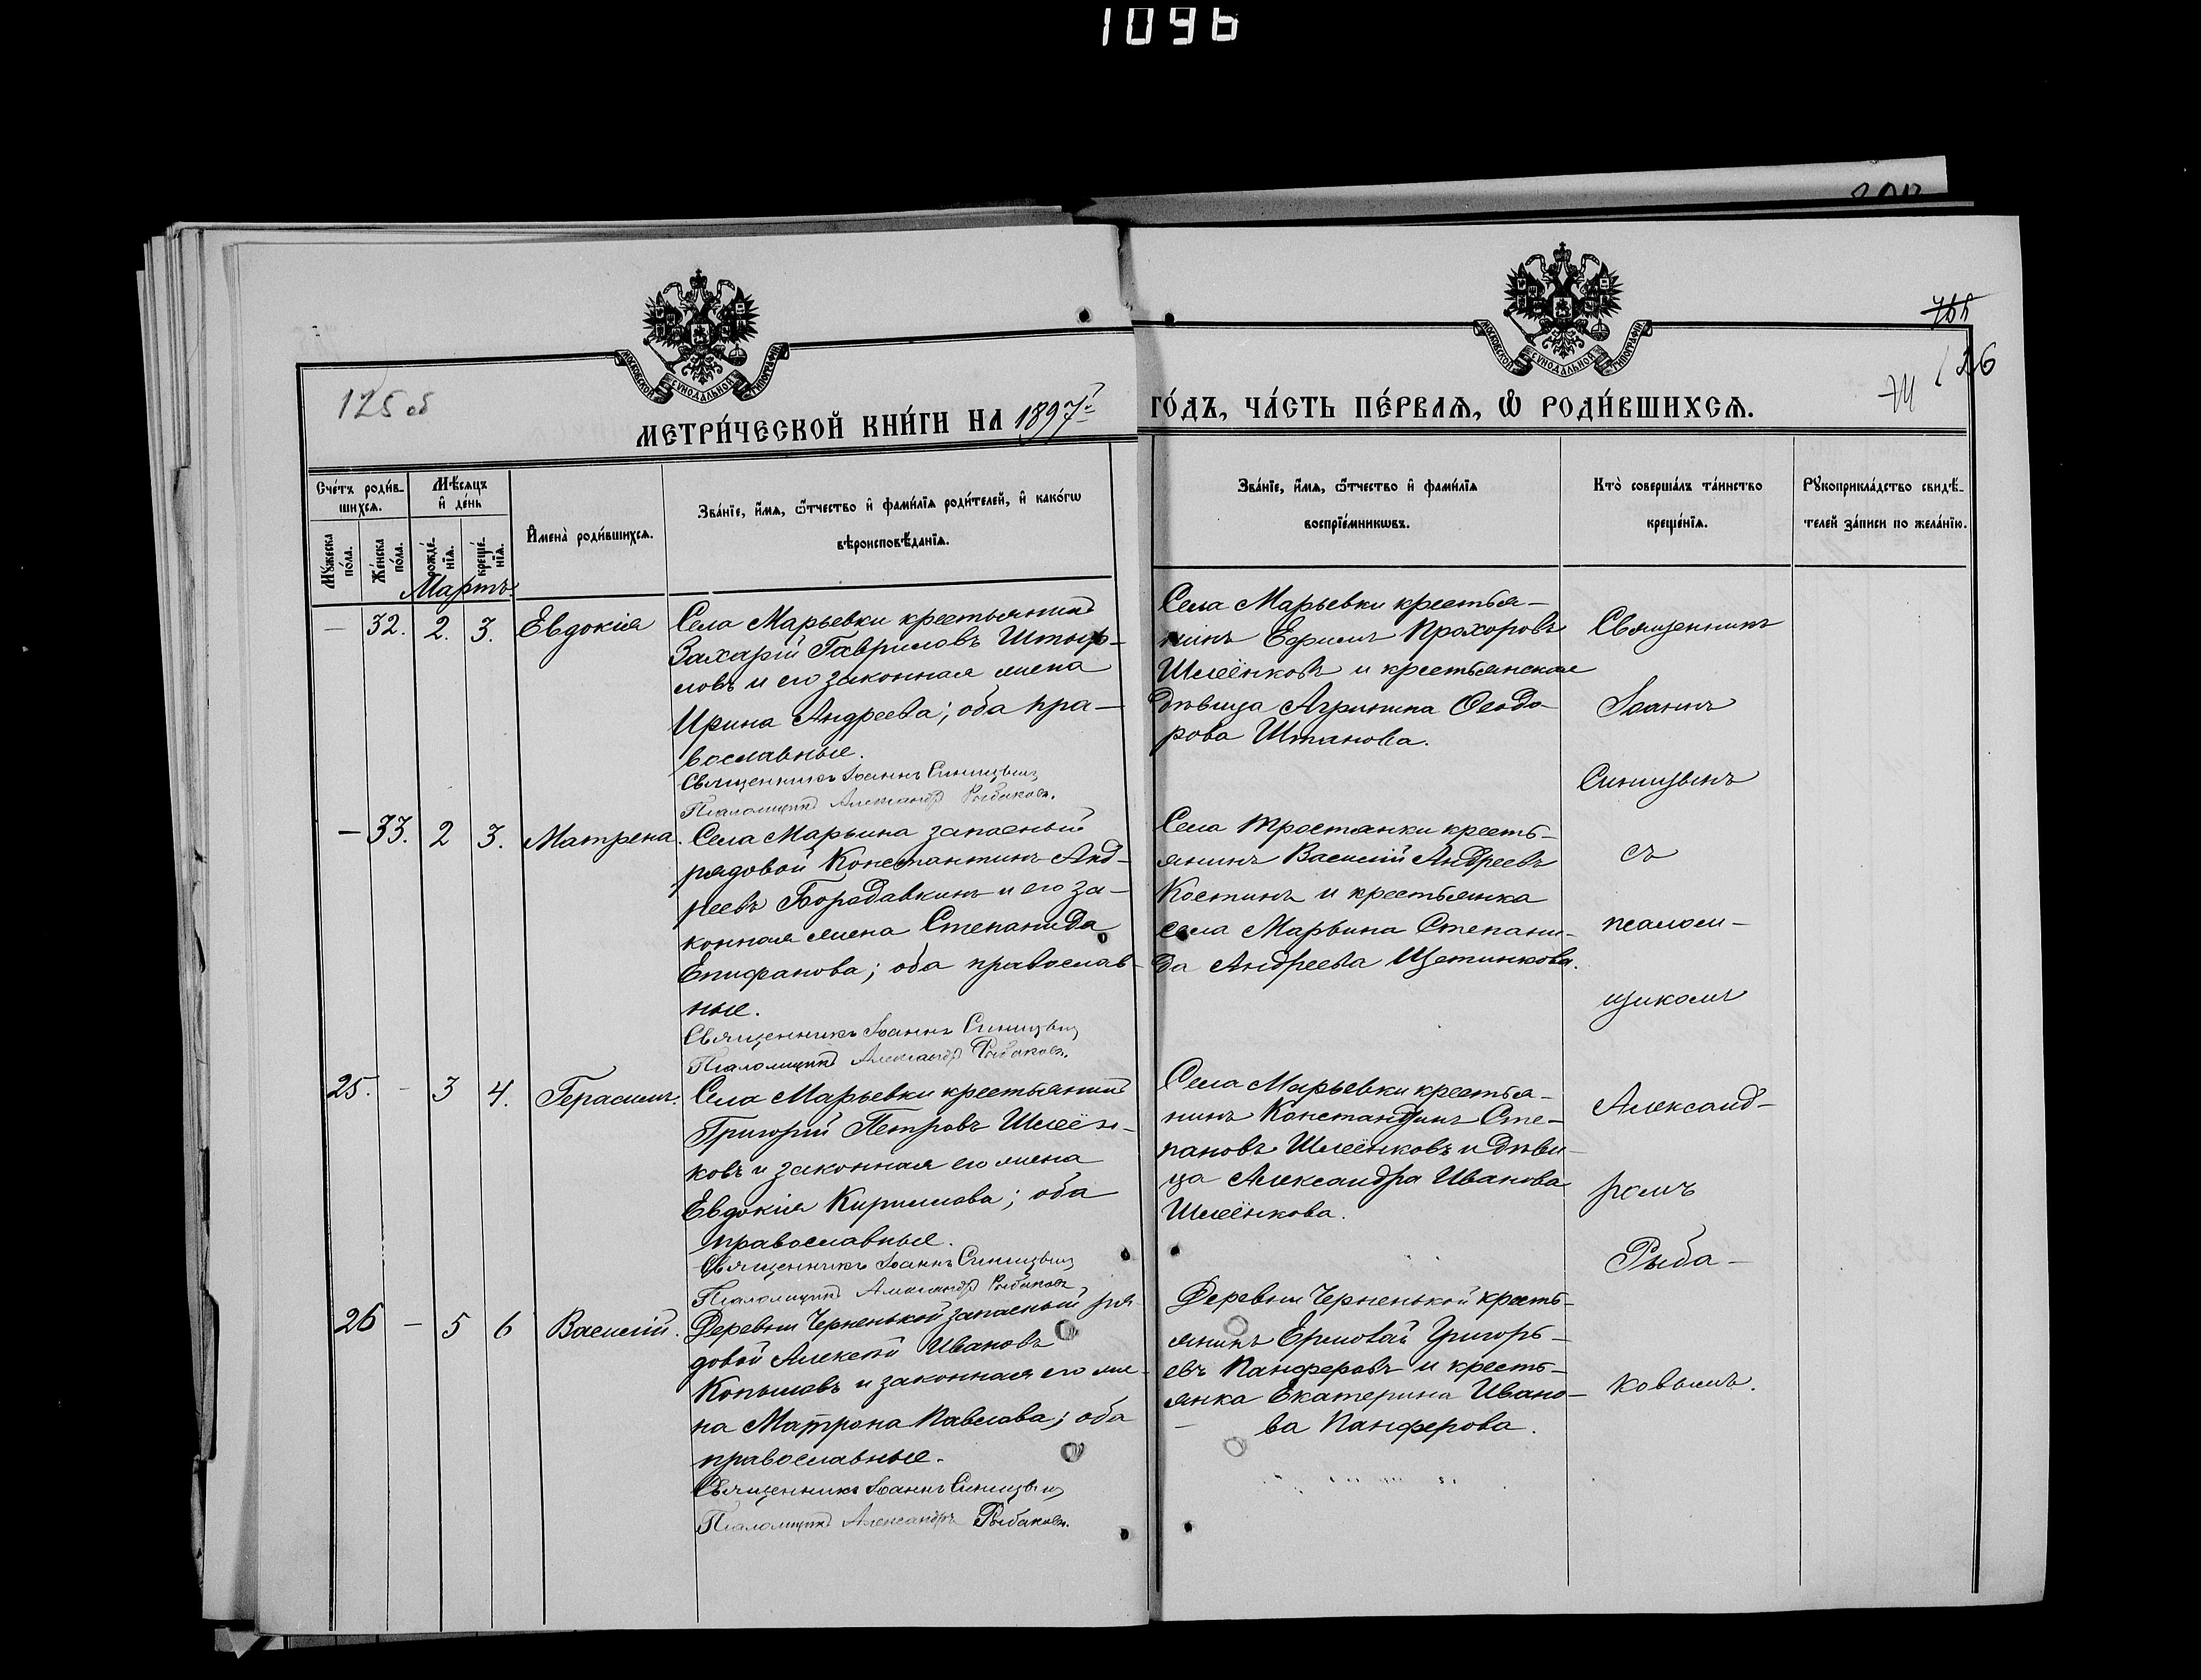 1096
755
126
711
125 об
МЕТРИЧЕСКОЙ КНИГИ НА 1897й ГОДЪ, ЧАСТЬ ПЕРВАЯ, Ѡ РОДИВШИХСЯ.
МОСКОВСКОЙ СѴНОДАЛЬНОЙ ТИПОГРАФІИ
МОСКОВСКОЙ СѴНОДАЛЬНОЙ ТИПОГРАФІИ
Счетъ родив-
шихся.
Мѣсяцъ
и день
Мужеска
пола.
Женска
пола.
рожде-
нія.
креще-
нія.
Имена родившихся.
Званіе, имя, ѿчество и фамилія родителей, и какогѡ
вѣроисповѣданія.
Званіе, имя, ѿчество и фамилія
воспріемникѡвъ.
Кто совершалъ таинство
крещенія.
Рукоприкладство свидѣ-
телей записи по желанію.
Мартъ
— 32. 2. 3. Евдокія
Села Марьевки крестьянинъ
Захарій Гавриловъ Штыр-
ловъ и его законная жена
Ирина Андреева; оба пра-
вославные.
Священникъ Іоаннъ Синицынъ
Псаломщикъ Александръ Рыбаковъ.
Села Марьевки крестья-
нинъ Ефимъ Прохоровъ
Шлеёнковъ и крестьянская
дѣвица Агрипина Ѳеодо-
рова Штанова.
— 33. 2 3. Матрена.
Села Марьина запасный
рядовой Константинъ Анд-
реевъ Бородавкинъ и его за-
конная жена Степанида
Епифанова; оба православ-
ные.
Священникъ Іоаннъ Синицынъ
Псаломщикъ Александръ Рыбаковъ.
Села Тростянки кресть-
янинъ Василій Андреевъ
Костинъ и крестьянка
села Марьина Степани-
да Андреева Щетинкова.
25. - 3 4. Герасимъ.
Села Марьевки крестьянинъ
Григорій Петровъ Шлеён-
ковъ и законная его жена
Евдокія Кириллова; оба
православные.
Священникъ Іоаннъ Синицынъ
Псаломщикъ Александръ Рыбаковъ
Села Марьевки крестья-
нинъ Константинъ Сте-
пановъ Шлеёнковъ и дѣви-
ца Александра Иванова
Шлеёнкова.
26 — 5 6 Василій.
Деревни Черненькой запасный ря-
довой Алексѣй Ивановъ
Копыловъ и законная его же-
на Матрона Павлова; оба
православные.
Священникъ Іоаннъ Синицынъ
Псаломщикъ Александръ Рыбаковъ.
Деревни Черненькой кресть-
янинъ Ермолай Григорь-
евъ Панферовъ и кресть-
янка Екатерина Ивано-
— ва Панферова.
Священникъ
Іоаннъ
Синицынъ
съ
псалом-
щикомъ
Александ-
ромъ
Рыба-
ковымъ.